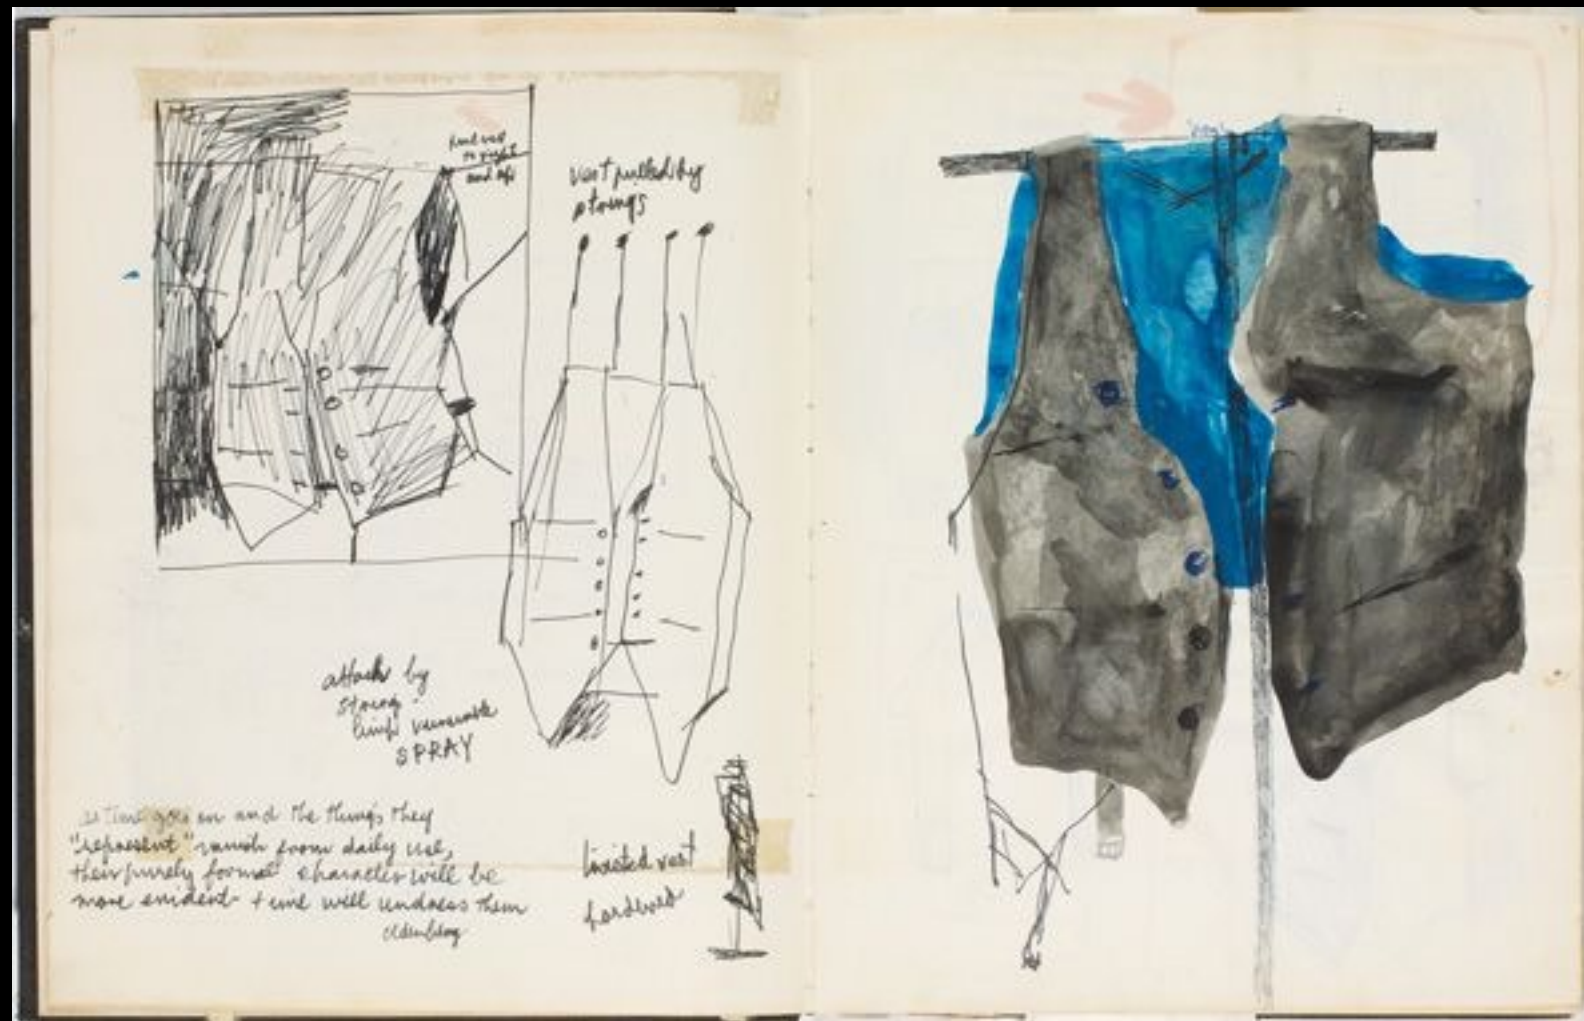 to right
and up
vest pulled by
strings
attach by
string
limp
SPRAY
as time goes on and the things they
"represent" vanish from daily use,
their purely formal character will be
more evident - time will undress them
Oldenburg
twisted vest
hardboard